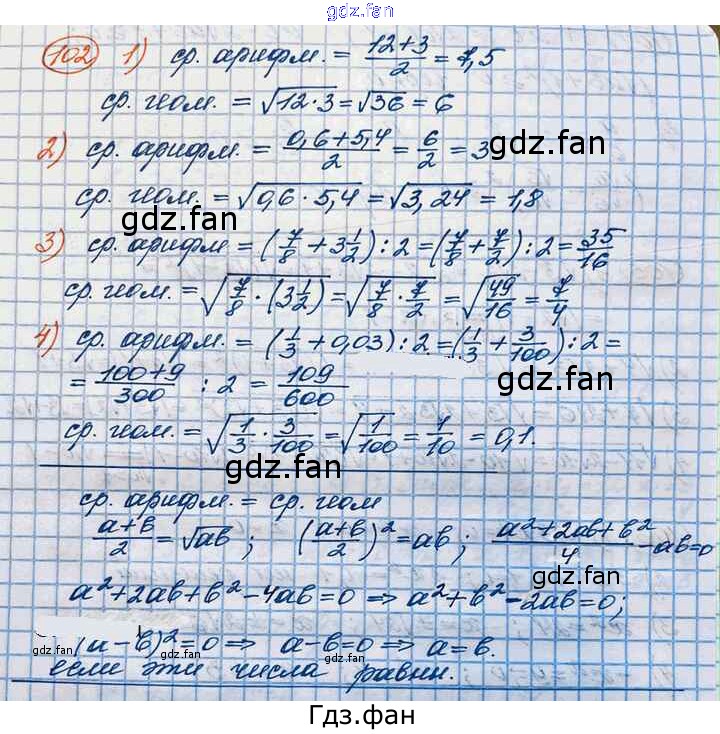 gdz.fan
102 1) ср. арифм. = (12+3)/2 = 7,5
ср. геом. = √(12·3) = √36 = 6
2) ср. арифм. = (0,6+5,4)/2 = 6/2 = 3
gdz.fan
ср. геом. = √(0,6·5,4) = √3,24 = 1,8
gdz.fan
3) ср. арифм = (7/8 + 3 1/2) : 2 = (7/8 + 7/2) : 2 = 35/16
ср. геом. = √(7/8 · (3 1/2)) = √(7/8 · 7/2) = √(49/16) = 7/4
4) ср. арифм. = (1/3 + 0,03) : 2 = (1/3 + 3/100) : 2 =
= (100+9)/300 : 2 = 109/600
gdz.fan
ср. геом. = √(1/3 · 3/100) = √(1/100) = 1/10 = 0,1.
gdz.fan
ср. арифм. = ср. геом
(a+b)/2 = √ab ; ((a+b)/2)² = ab ; (a²+2ab+b²)/4 - ab=0
gdz.fan
a²+2ab+b²-4ab=0 ⇒ a²+b²-2ab=0;
(a-b)²=0 ⇒ a-b=0 ⇒ a=b.
gdz.fan gdz.fan gdz.fan
если эти числа равны.
Гдз.фан